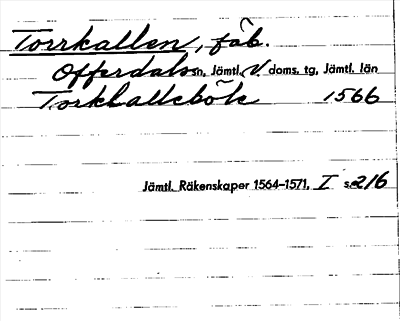 Torrkallen, fäb.
Offerdals sn, Jämtl. V. doms. tg, Jämtl. län
Torkhallebôle 1566
Jämtl. Räkenskaper 1564-1571, I s. 216